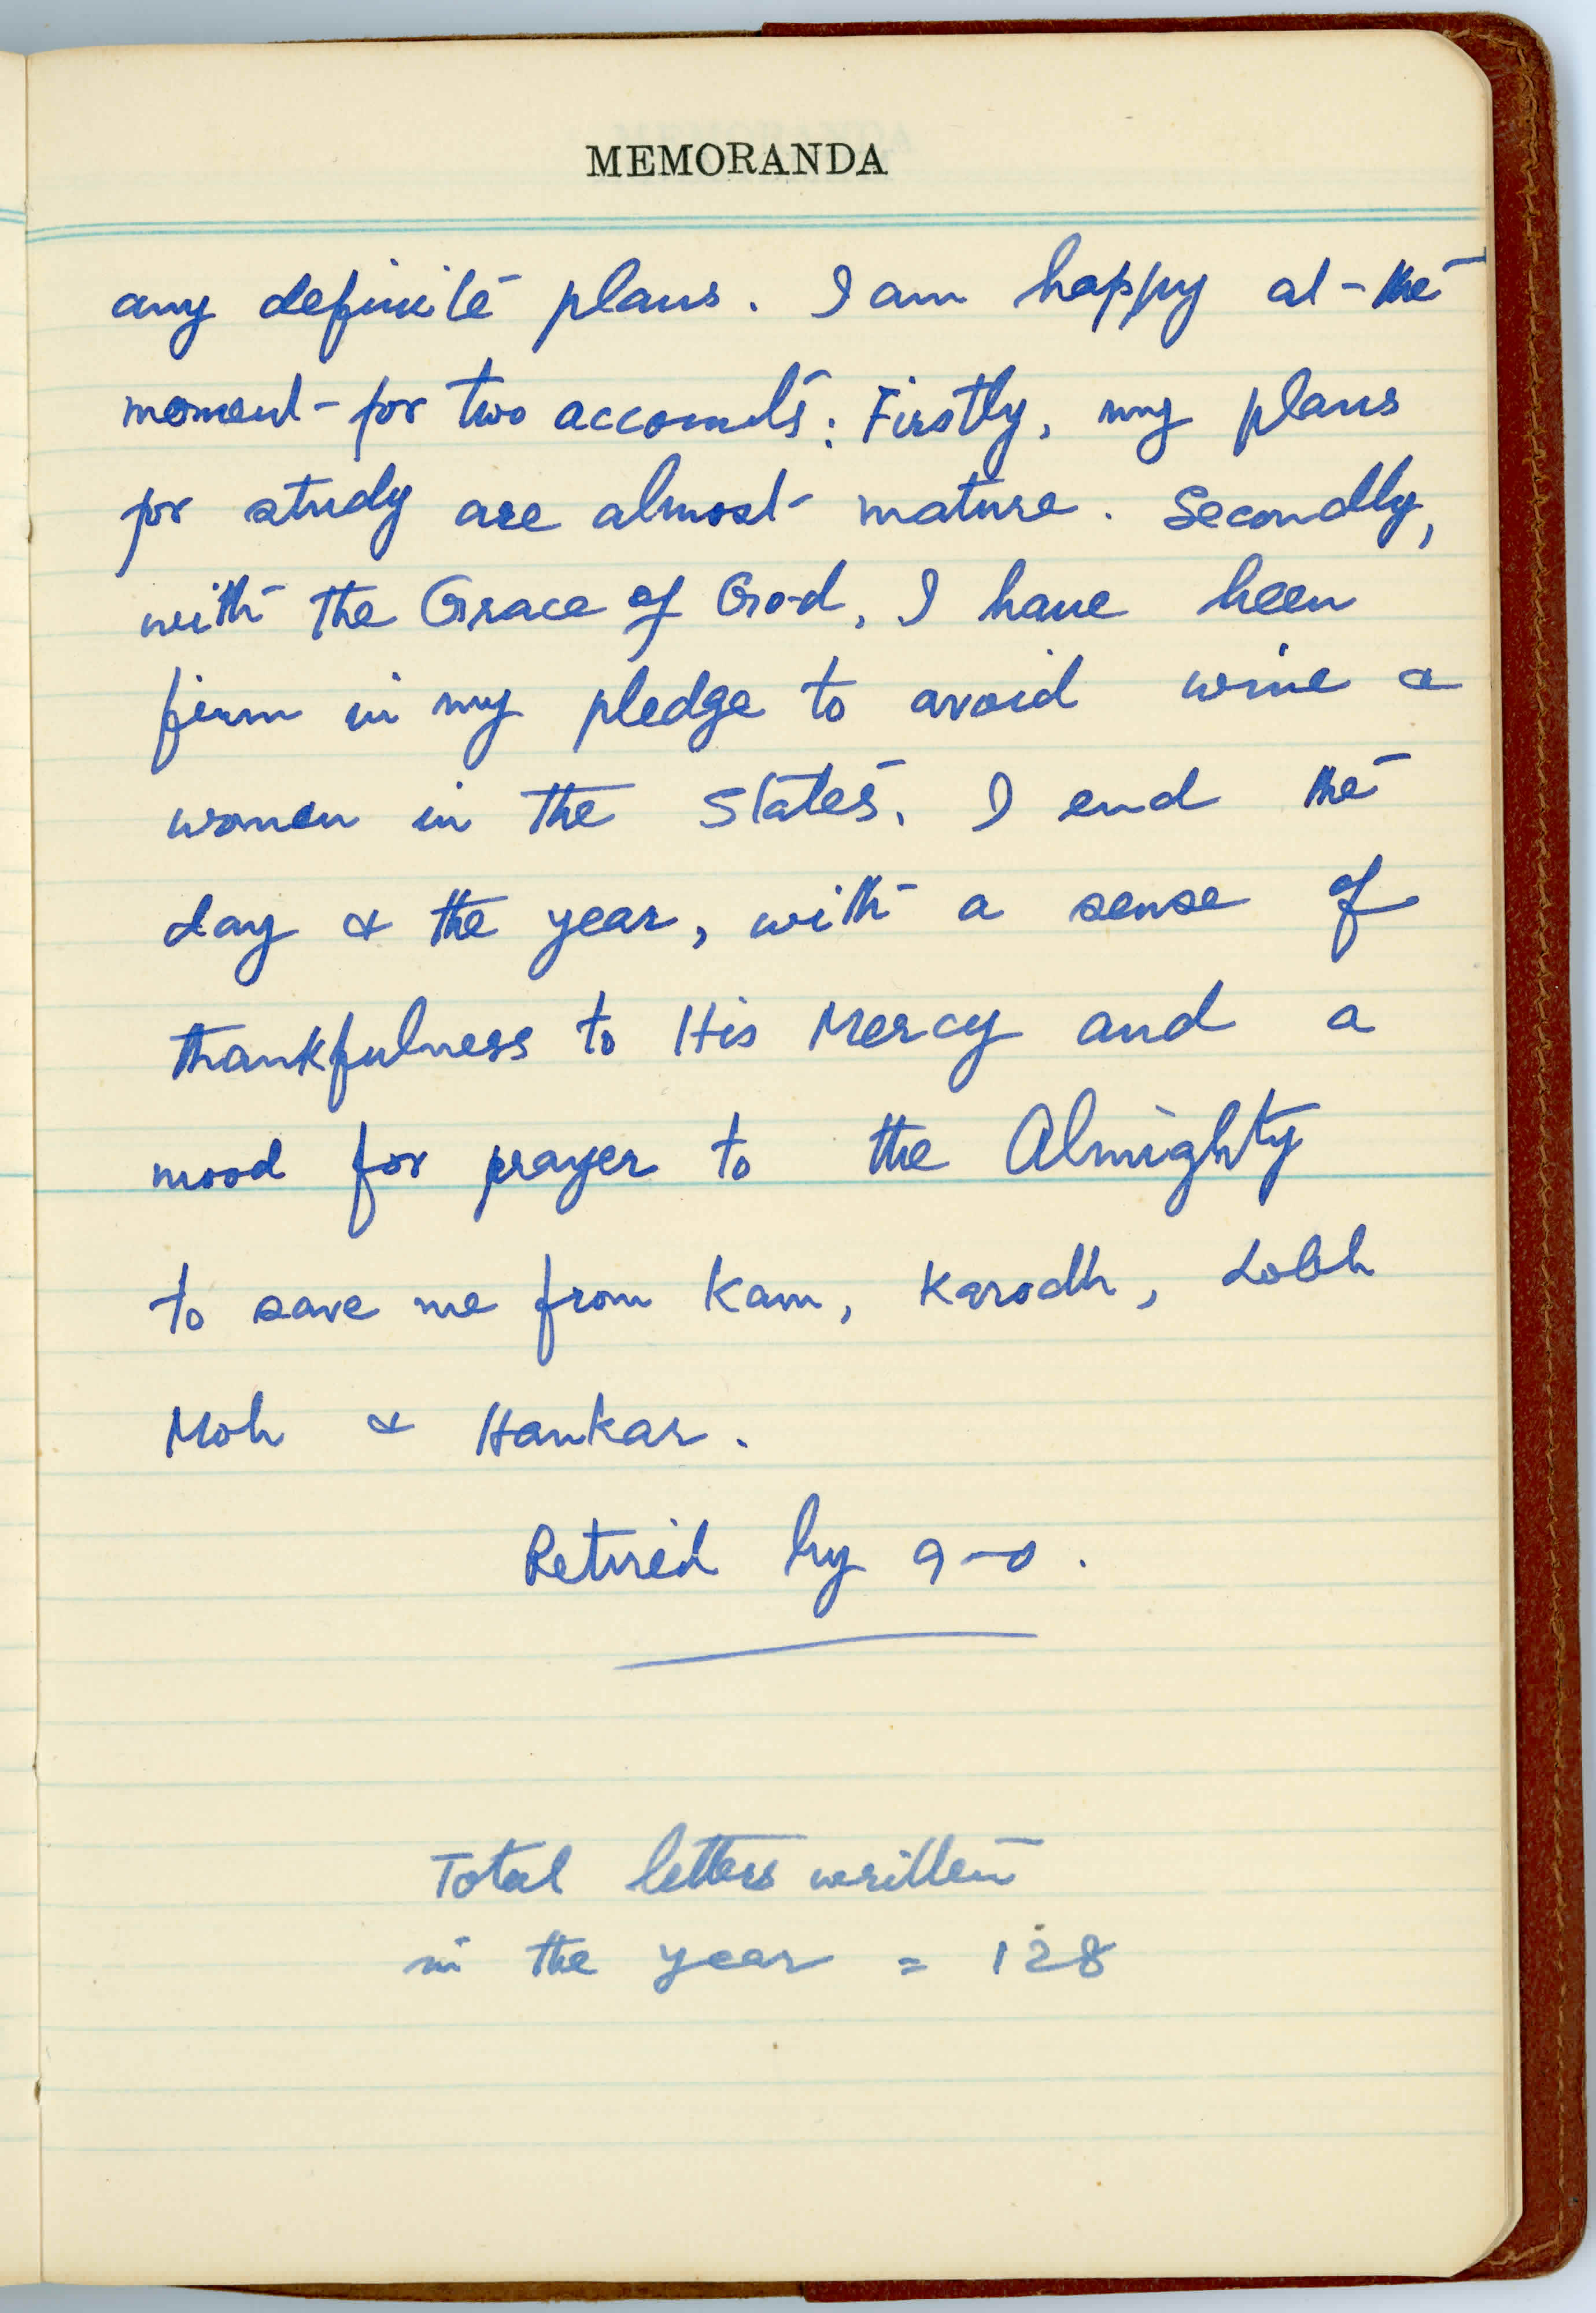 MEMORANDA
any definite plans. I am happy at the
moment for two accounts: Firstly, my plans
for study are almost mature. Secondly,
with the Grace of God, I have been
firm in my pledge to avoid wine &
women in the States. I end the
day & the year, with a sense of
thankfulness to His Mercy and a
mood for prayer to the Almighty
to save me from Kam, Karodh, Lobh
Moh & Hankar.
Retired by 9-0.
Total letters written
in the year = 128